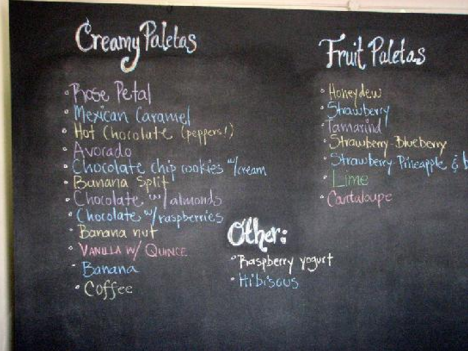 Creamy Paletas
Rose Petal
Mexican Caramel
Hot Chocolate (peppers!)
Avorado
Chocolate chip cookies w/cream
Banana Split
Chocolate w/ almonds
Chocolate w/ raspberries
Banana nut
VANILLA W/ QUINCE
Banana
Coffee
Other:
Raspberry yogurt
Hibiscus
Fruit Paletas
Honeydew
Strawberry
Tamarind
Strawberry-Blueberry
Strawberry-Pineapple &
Lime
Cantaloupe